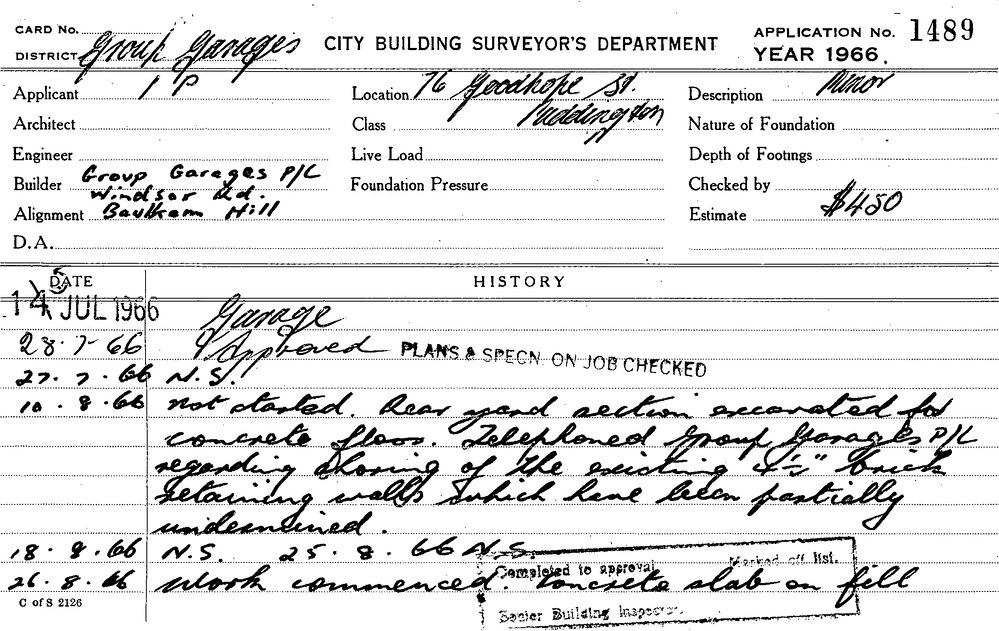 CARD No. Group Garages
DISTRICT
CITY BUILDING SURVEYOR'S DEPARTMENT
APPLICATION No. 1489
YEAR 1966.
Applicant 1 P
Location 76 Goodhope St.
Description Minor
Architect
Class Paddington
Nature of Foundation
Engineer
Live Load
Depth of Footings
Builder Group Garages P/L
Windsor Rd.
Foundation Pressure
Checked by
Alignment Baulkam Hill
Estimate $450
D.A.
DATE HISTORY
14 JUL 1966 Garage
28.7.66 Approved PLANS & SPECN. ON JOB CHECKED
27.7.66 N.S.
10.8.66 Not started. Rear yard section excavated for
concrete floor. Telephoned Group Garages P/L
regarding shoring of the existing 4½" brick
retaining walls which have been partially
undermined.
18.8.66 N.S. 25.8.66 N.S.
26.8.66 Work commenced. Concrete slab on fill
Completed to approval Marked off list.
Senior Building Inspector.
C of S 2126